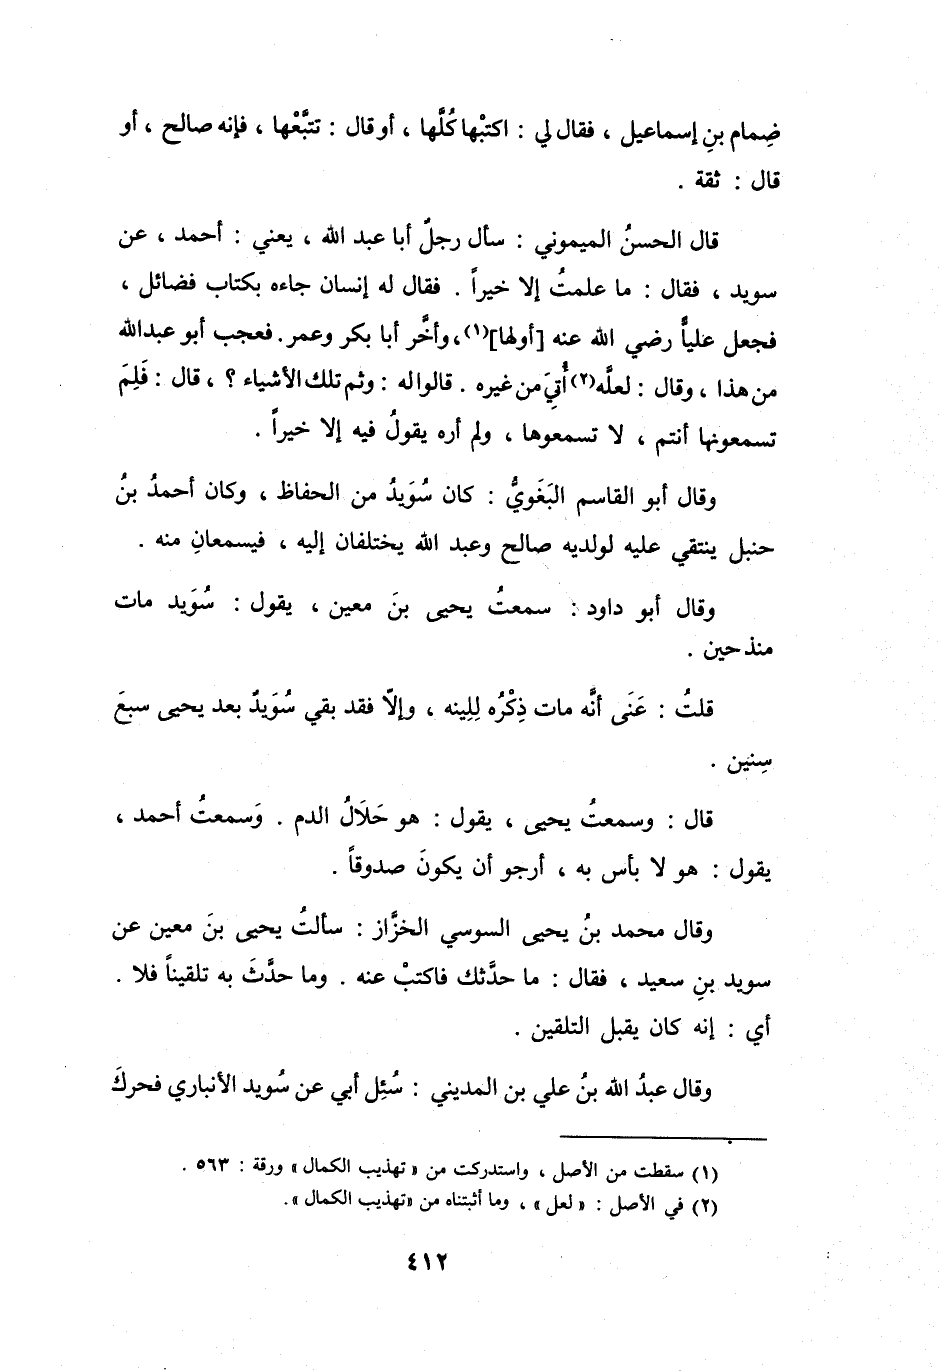 ضِمام بنِ إسماعيل ، فقال لي : اكتبْها كُلَّها ، أو قال : تتبَّعْها ، فإنه صالح ، أو
قال : ثقة .
قال الحسنُ الميموني : سأل رجلٌ أبا عبد الله ، يعني : أحمد ، عن
سويد ، فقال : ما علمتُ إلا خيراً . فقال له إنسان جاءه بكتاب فضائل ،
فجعل علياًّ رضي الله عنه [أولها](١)، وأخَّر أبا بكر وعمر. فعجب أبو عبدالله
من هذا ، وقال : لعلَّه(٢) أُتِيَ من غيره . قالوا له : وثم تلك الأشياء ؟ ، قال : فَلِمَ
تسمعونها أنتم ، لا تسمعوها ، ولم أره يقولُ فيه إلا خيراً .
وقال أبو القاسم البَغَويُّ : كان سُوَيدُ من الحفاظ ، وكان أحمدُ بنُ
حنبل ينتقي عليه لولديه صالح وعبد الله يختلفان إليه ، فيسمعانِ منه .
وقال أبو داود : سمعتُ يحيى بنَ معين ، يقول : سُوَيد مات
منذ حين .
قلتُ : عَنَى أنَّه مات ذِكْرُه لِلِينه ، وإلاّ فقد بقي سُوَيدٌ بعد يحيى سبعَ
سِنين .
قال : وسمعتُ يحيى ، يقول : هو حَلَالُ الدم . وَسمعتُ أحمد ،
يقول : هو لا بأس به ، أرجو أن يكونَ صدوقاً .
وقال محمد بنُ يحيى السوسي الخزَّاز : سألتُ يحيى بنَ معين عن
سويد بنِ سعيد ، فقال : ما حدَّثك فاكتبْ عنه . وما حدَّثَ به تلقيناً فلا .
أي : إنه كان يقبل التلقين .
وقال عبدُ الله بنُ علي بن المديني : سُئِل أبي عن سُويد الأنباري فحركَ
(١) سقطت من الأصل ، واستدركت من « تهذيب الكمال » ورقة : ٥٦٣ .
(٢) في الأصل : « لعل » ، وما أثبتناه من «تهذيب الكمال ».
٤١٢